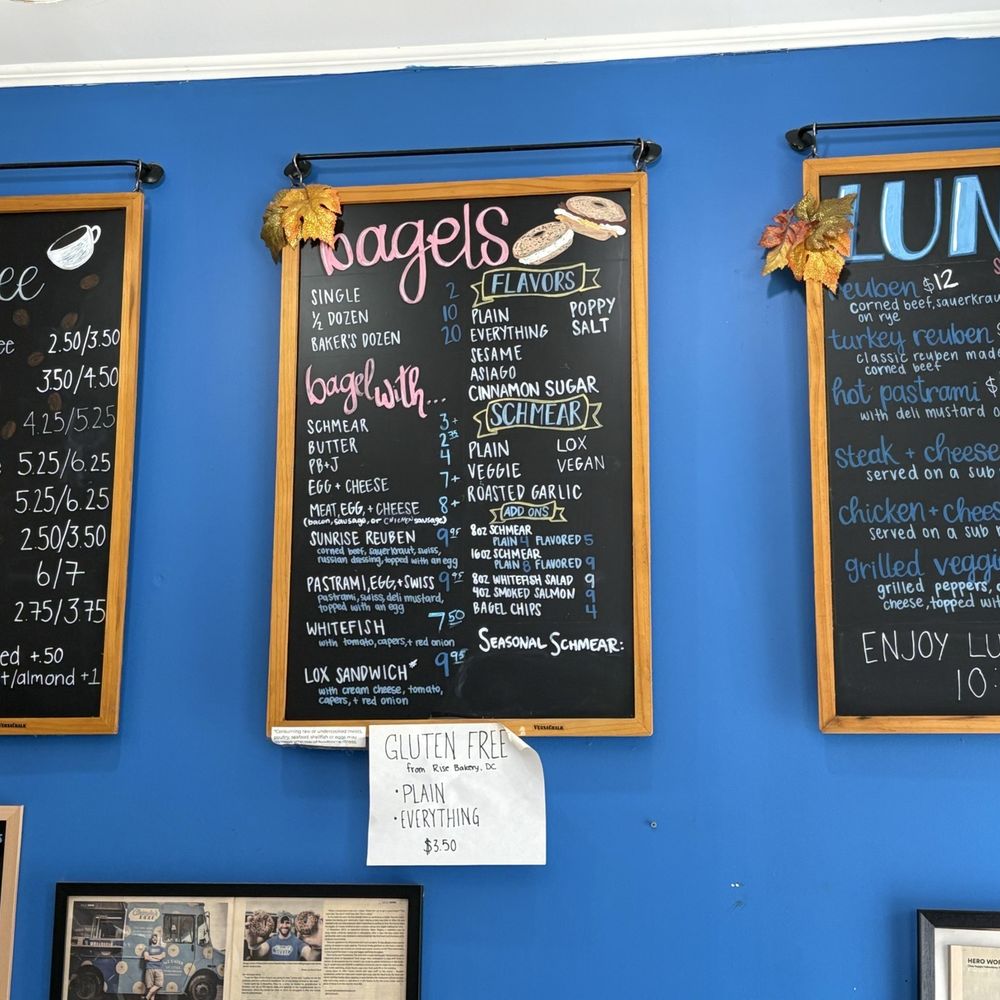 ee
ee 2.50/3.50
3.50/4.50
4.25/5.25
5.25/6.25
5.25/6.25
2.50/3.50
6/7
2.75/3.75
ed +.50
t/almond +1
VERSACHALK
bagels
SINGLE 2
½ DOZEN 10
BAKER'S DOZEN 20
bagel with...
SCHMEAR 3+
BUTTER 2.75
PB+J 4
EGG + CHEESE 7+
MEAT, EGG, + CHEESE 8+
(bacon, sausage, or CHICKEN sausage)
SUNRISE REUBEN 9.95
corned beef, sauerkraut, swiss,
russian dressing, topped with an egg
PASTRAMI, EGG, + SWISS 9.95
pastrami, swiss, deli mustard,
topped with an egg
WHITEFISH 7.50
with tomato, capers, + red onion
LOX SANDWICH* 9.95
with cream cheese, tomato,
capers, + red onion
FLAVORS
PLAIN
EVERYTHING
SESAME
ASIAGO
CINNAMON SUGAR
POPPY
SALT
SCHMEAR
PLAIN LOX
VEGGIE VEGAN
ROASTED GARLIC
ADD ONS
8oz SCHMEAR
PLAIN 4 FLAVORED 5
16oz SCHMEAR
PLAIN 8 FLAVORED 9
8oz WHITEFISH SALAD 9
4oz SMOKED SALMON 9
BAGEL CHIPS 4
SEASONAL SCHMEAR:
VERSACHALK
*Consuming raw or undercooked meats,
poultry, seafood shellfish or eggs may
GLUTEN FREE
from Rise Bakery, DC
• PLAIN
• EVERYTHING
$3.50
LUN
reuben $12
corned beef, sauerkrau
on rye
turkey reuben $
classic reuben made
corned beef
hot pastrami $
with deli mustard o
steak + cheese
served on a sub
chicken + chees
served on a sub
grilled veggi
grilled peppers,
cheese, topped wit
ENJOY LU
10:
HERO WOR